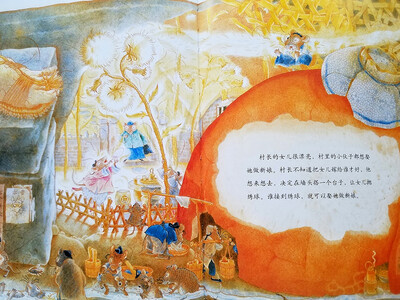 村长的女儿很漂亮，村里的小伙子都想娶
她做新娘。村长不知道把女儿嫁给谁才好，他
想来想去，决定在墙头搭一个台子，让女儿抛
绣球，谁接到绣球，就可以娶她做新娘。